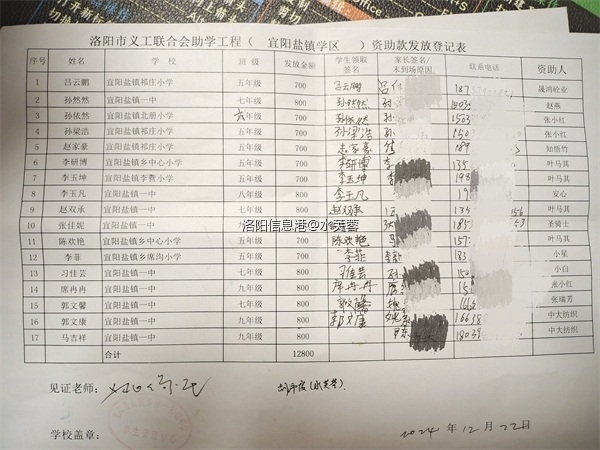 洛阳市义工联合会助学工程（ 宜阳盐镇学区 ）资助款发放登记表
序号 姓名 学校 班级 发放金额 学生领取签名 家长签名/未到场原因 联系电话 资助人
1 吕云鹏 宜阳盐镇祁庄小学 五年级 700 吕云鹏 吕 187 晟鸿砼业
2 孙然然 宜阳盐镇一中 七年级 800 孙然然 孙 1503 赵燕
3 孙依然 宜阳盐镇北册小学 六年级 700 孙依然 孙 1503 张小红
4 孙梁浩 宜阳盐镇祁庄小学 五年级 700 孙梁浩 孙 150 张小红
5 赵家豪 宜阳盐镇祁庄小学 五年级 700 赵家豪 189 知悟竹
6 李研博 宜阳盐镇乡中心小学 五年级 700 李研博 李 135 叶马其
7 李玉坤 宜阳盐镇李贾小学 五年级 700 李玉坤 198 叶马其
8 李玉凡 宜阳盐镇一中 八年级 800 李玉凡 19 安心
9 赵双承 宜阳盐镇一中 七年级 800 赵双承 134 叶马其
10 张佳妮 宜阳盐镇一中 七年级 800 张 185 圣骑士
11 陈欢艳 宜阳盐镇乡中心小学 六年级 700 陈欢艳 马 157 叶马其
12 李菲 宜阳盐镇乡席沟小学 五年级 700 李菲 李 183 小星
13 习佳芸 宜阳盐镇一中 七年级 800 习佳芸 孙 150 小白
14 席冉冉 宜阳盐镇一中 九年级 800 席冉冉 15 张小红
15 郭文馨 宜阳盐镇一中 七年级 800 郭文馨 魏 张瑞芳
16 郭文康 宜阳盐镇一中 九年级 800 郭文康 魏 16638 中大纺织
17 马吉祥 宜阳盐镇一中 九年级 800 18039 中大纺织
合计 12800
洛阳信息港@水芙蓉
见证老师：
学校盖章：
2024 年 12 月 22 日